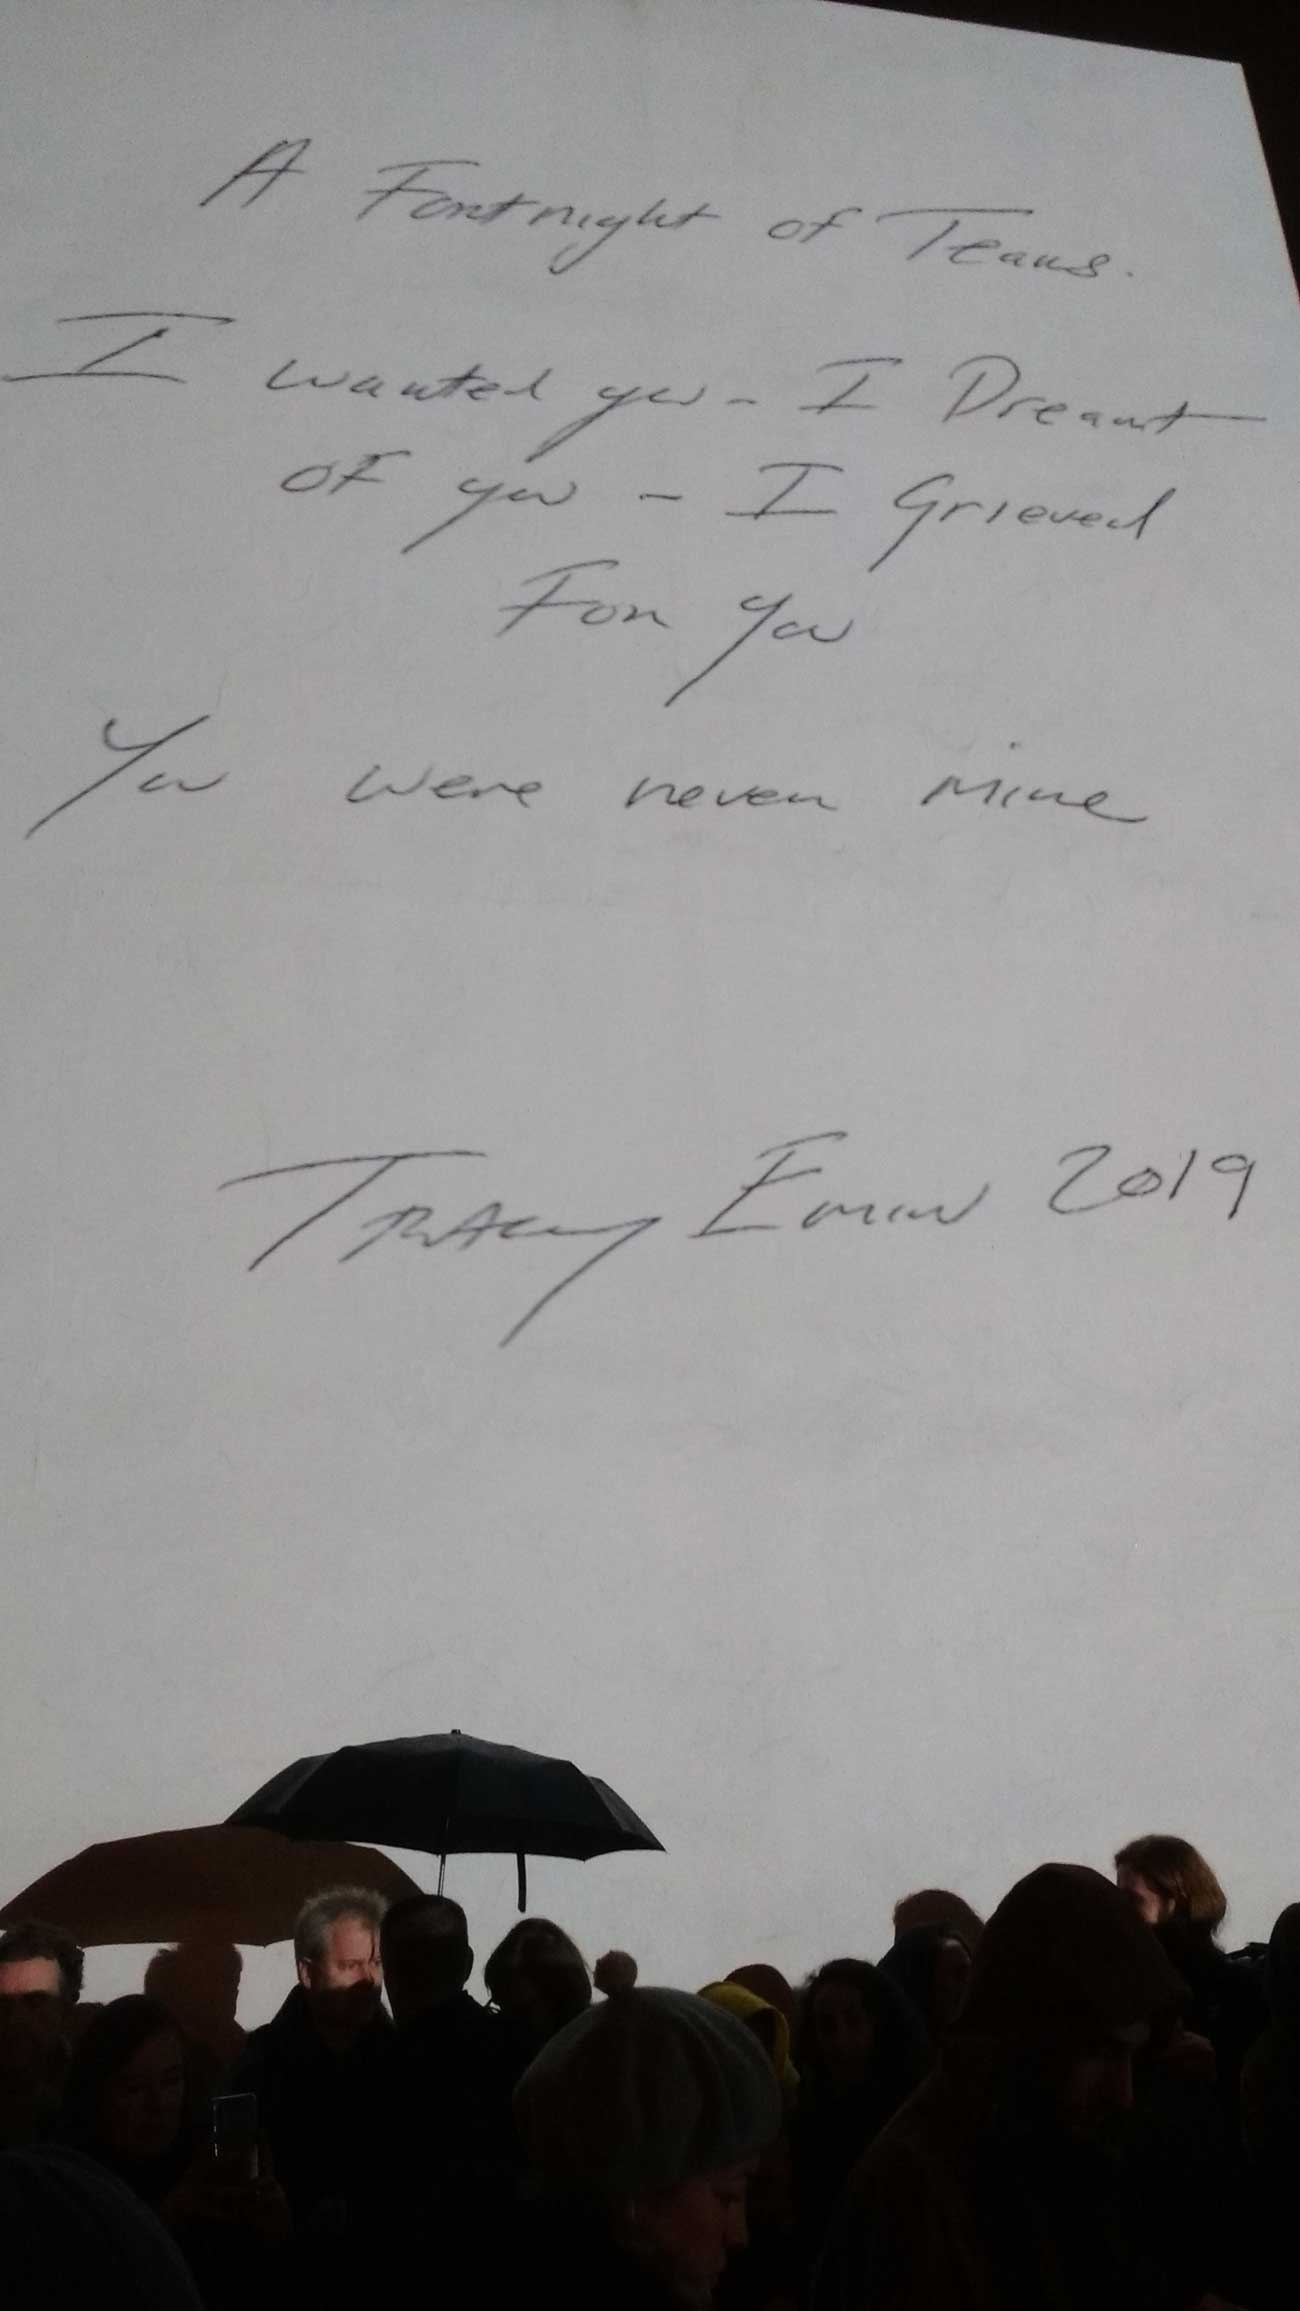 A Fortnight of Tears.
I wanted you - I Dreamt
of you - I Grieved
For you
You were never mine
Tracey Emin 2019